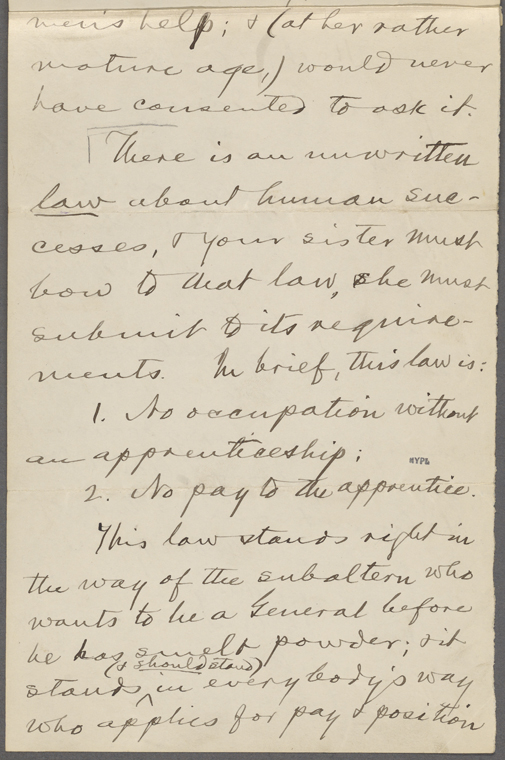 men's help; & (at her rather
mature age,) would never
have consented to ask it.
There is an unwritten
law about human suc-
cesses, & your sister must
bow to that law, she must
submit to its require-
ments. In brief, this law is:
1. No occupation without
an apprenticeship;
NYPL
2. No pay to the apprentice.
This law stands right in
the way of the subaltern who
wants to be a General before
he has smelt powder; & it
(& should stand)
stands in everybody's way
who applies for pay & position